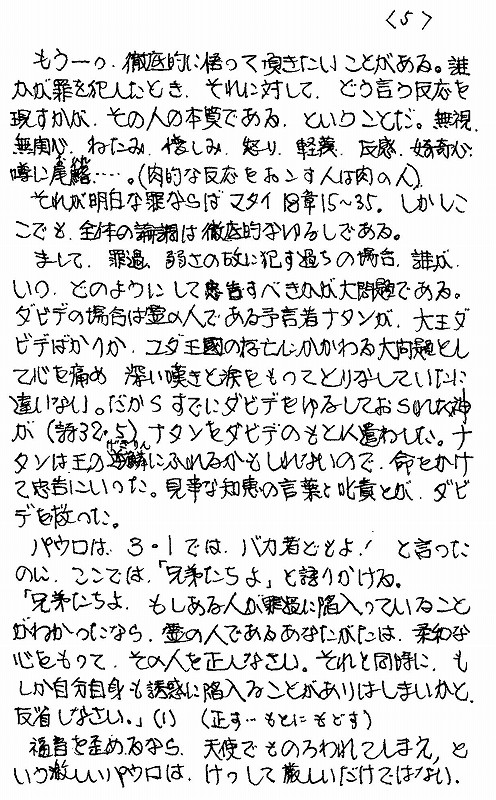 〈5〉
もう一つ、徹底的に悟って頂きたいことがある。誰
かが罪を犯したとき、それに対して、どう言う反応を
現すかが、その人の本質である、ということだ。無視、
無関心、ねたみ、憎しみ、怒り、軽蔑、反感、好奇心、
噂に尾鰭……。(肉的な反応をおこす人は肉の人)
それが明白な罪ならばマタイ18章15~35。しかしこ
こでも、全体の論調は徹底的なゆるしである。
まして、罪過、弱さの故に犯す過ちの場合、誰が、
いつ、どのようにして忠告すべきかが大問題である。
ダビデの場合は霊の人である予言者ナタンが、大王ダ
ビデばかりか、ユダ王國の存亡にかかわる大問題とし
て心を痛め、深い嘆きと涙をもってとりなしていたに
違いない。だからすでにダビデをゆるしておられた神
が(詩32・5)ナタンをダビデのもとに遣わした。ナ
タンは王の逆鱗(げきりん)にふれるかもしれないので、命をかけ
て忠告にいった。見事な知恵の言葉と叱責とが、ダビ
デを救った。
パウロは、3・1では、バカ者どもよ!と言った
のに、ここでは、「兄弟たちよ」と語りかける。
「兄弟たちよ、もしある人が罪過に陥入っていること
がわかったなら、霊の人であるあなたがたは、柔和な
心をもって、その人を正しなさい。それと同時に、も
しか自分自身も誘惑に陥入ることがありはしまいかと、
反省しなさい。」(1) (正す…もとにもどす)
福音を歪めるなら、天使でものろわれてしまえ、と
いう激しいパウロは、けっして厳しいだけではない。